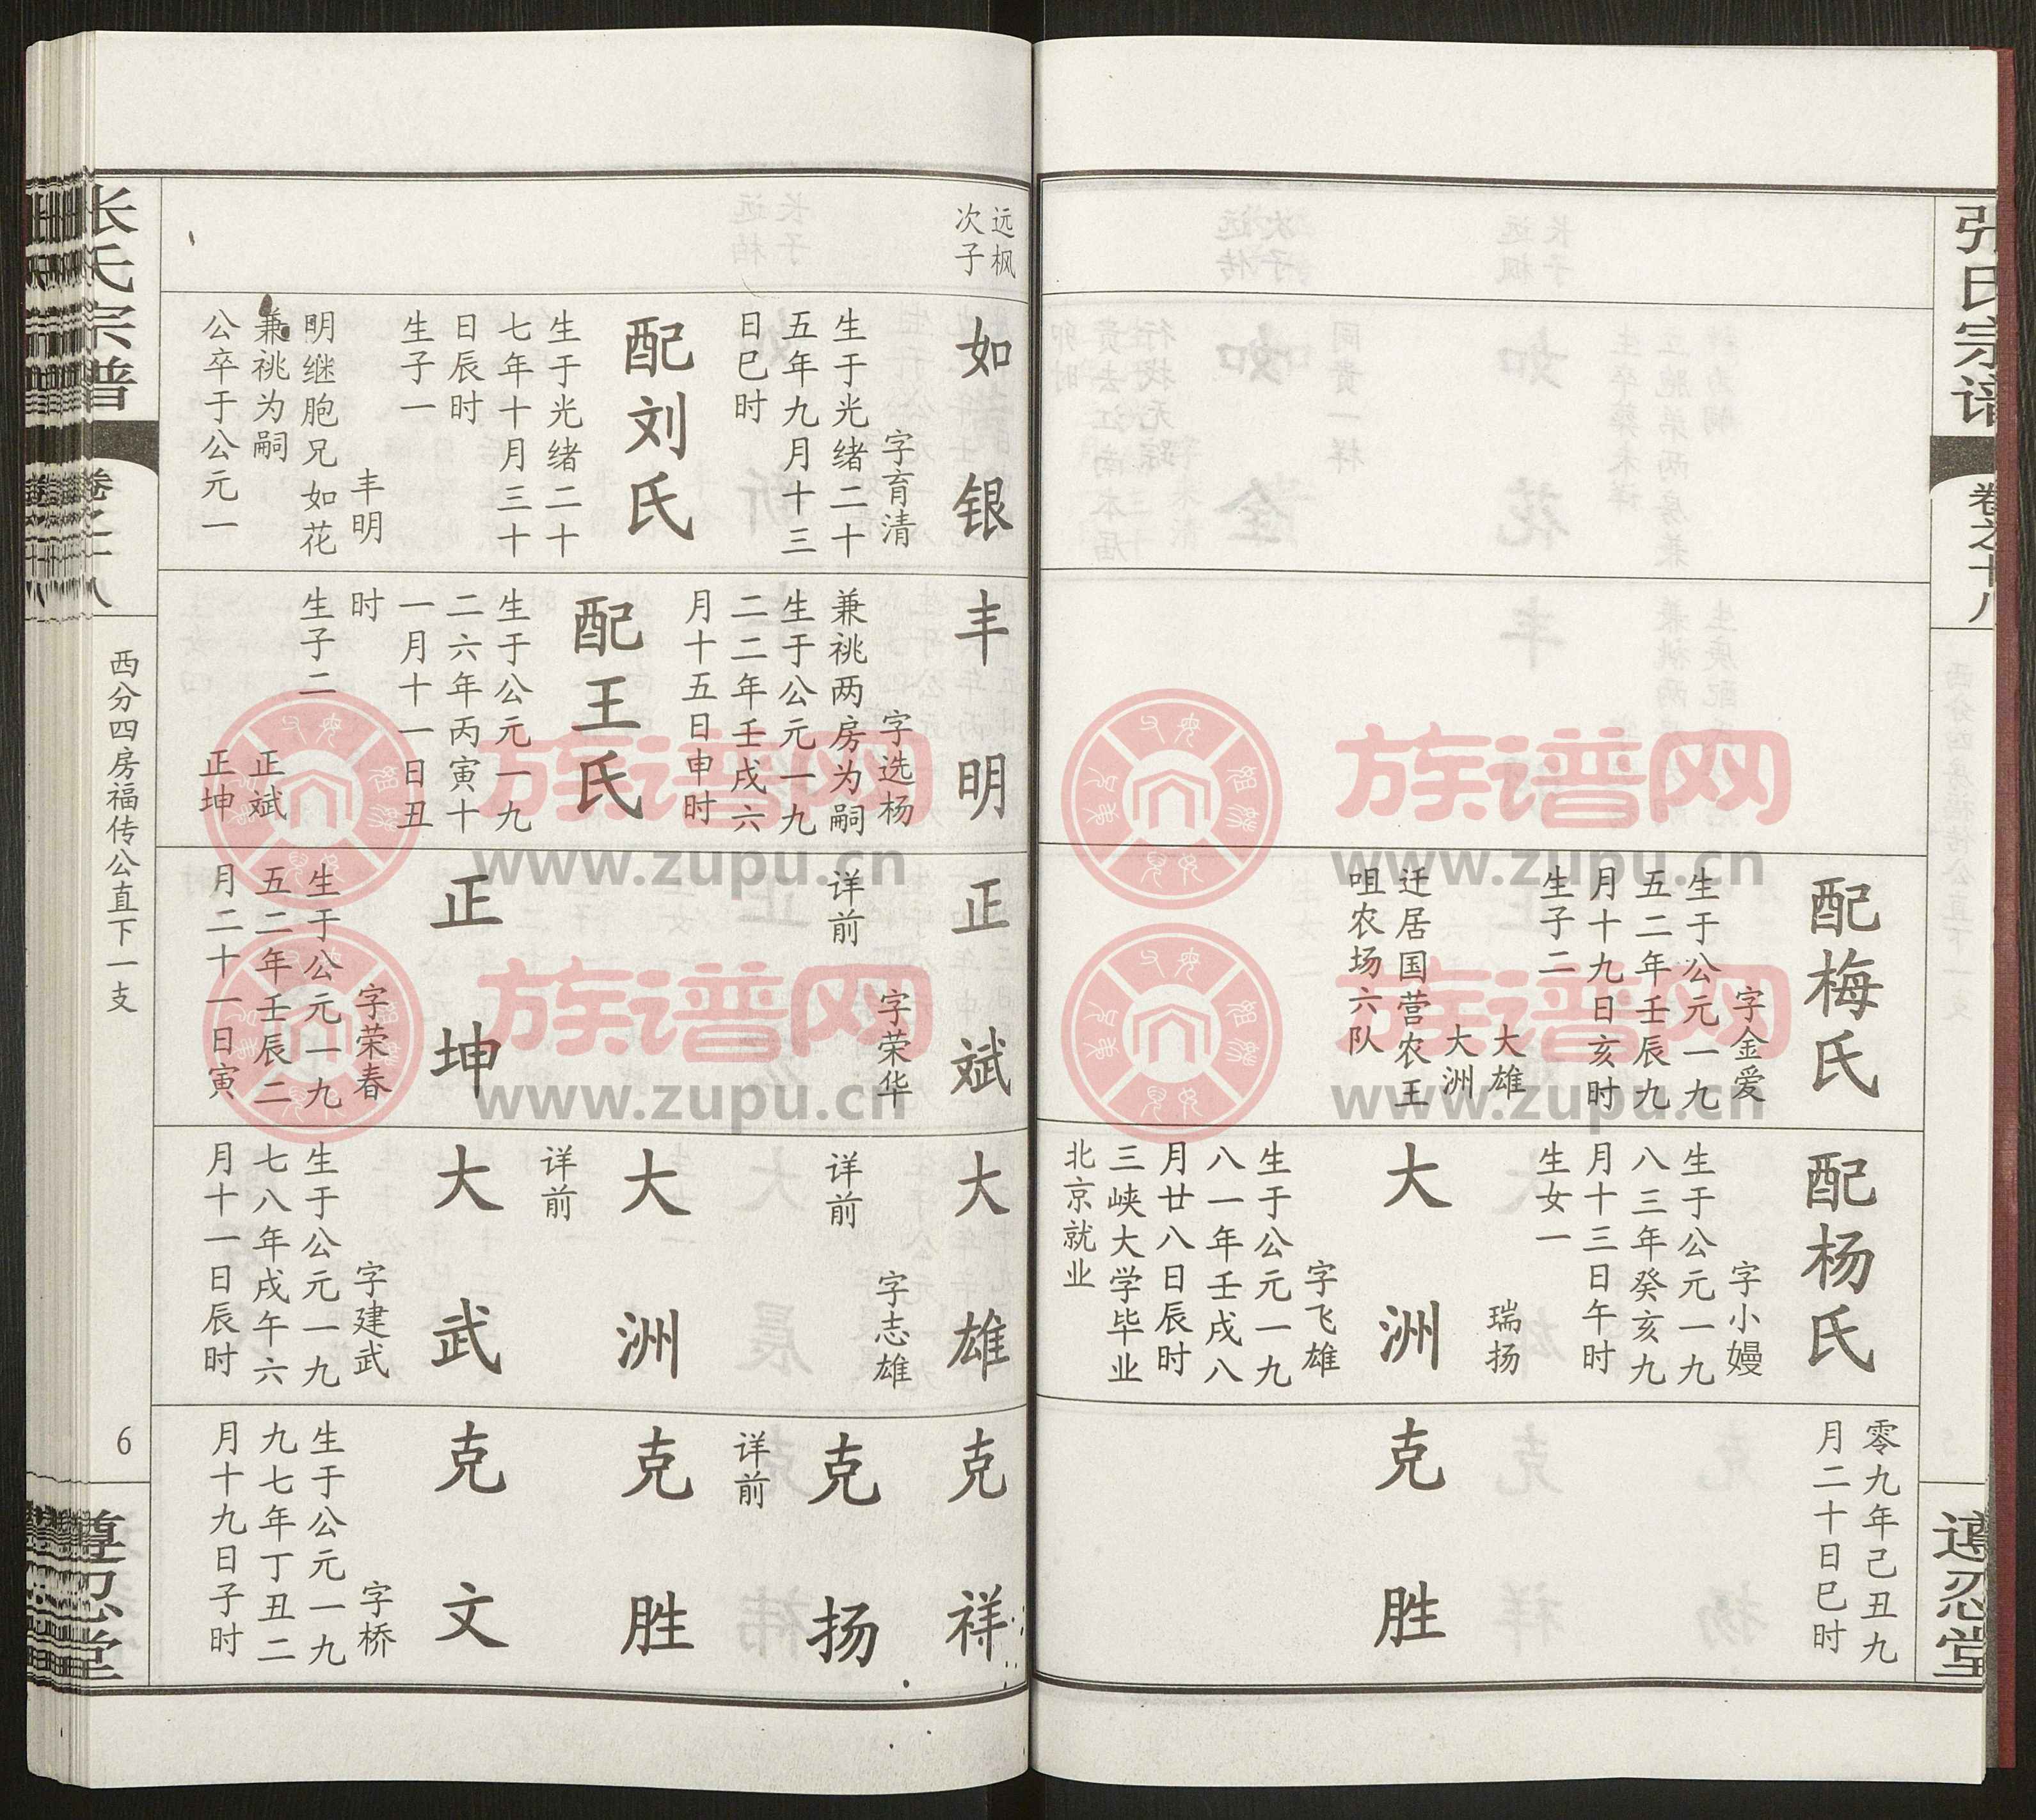 张氏宗谱
卷之十八
遵忍堂
配梅氏
字金爱
生于公元一九
五二年壬辰九
月十九日亥时
生子二
大雄
大洲
迁居国营农王
咀农场六队
配杨氏
字小嫚
生于公元一九
八三年癸亥九
月十三日午时
生女一
瑞扬
大洲
字飞雄
生于公元一九
八一年壬戌八
月廿八日辰时
三峡大学毕业
北京就业
零九年己丑九
月二十日巳时
克胜
远枫
次子
如银
字育清
生于光绪二十
五年九月十三
日巳时
配刘氏
生于光绪二十
七年十月三十
日辰时
生子一
丰明
明继胞兄如花
兼祧为嗣
公卒于公元一
丰明
字选杨
兼祧两房为嗣
生于公元一九
二二年壬戌六
月十五日申时
配王氏
生于公元一九
二六年丙寅十
一月十一日丑
时
生子二
正斌
正坤
正斌
字荣华
详前
正坤
字荣春
生于公元一九
五二年壬辰二
月二十一日寅
大雄
字志雄
详前
大洲
详前
大武
字建武
生于公元一九
七八年戌午六
月十一日辰时
克祥
克扬
详前
克胜
克文
字桥
生于公元一九
九七年丁丑二
月十九日子时
张氏宗谱
卷之十八
西分四房福传公直下一支
6
尊忍堂
族谱网
www.zupu.cn
族谱网
www.zupu.cn
族谱网
www.zupu.cn
族谱网
www.zupu.cn